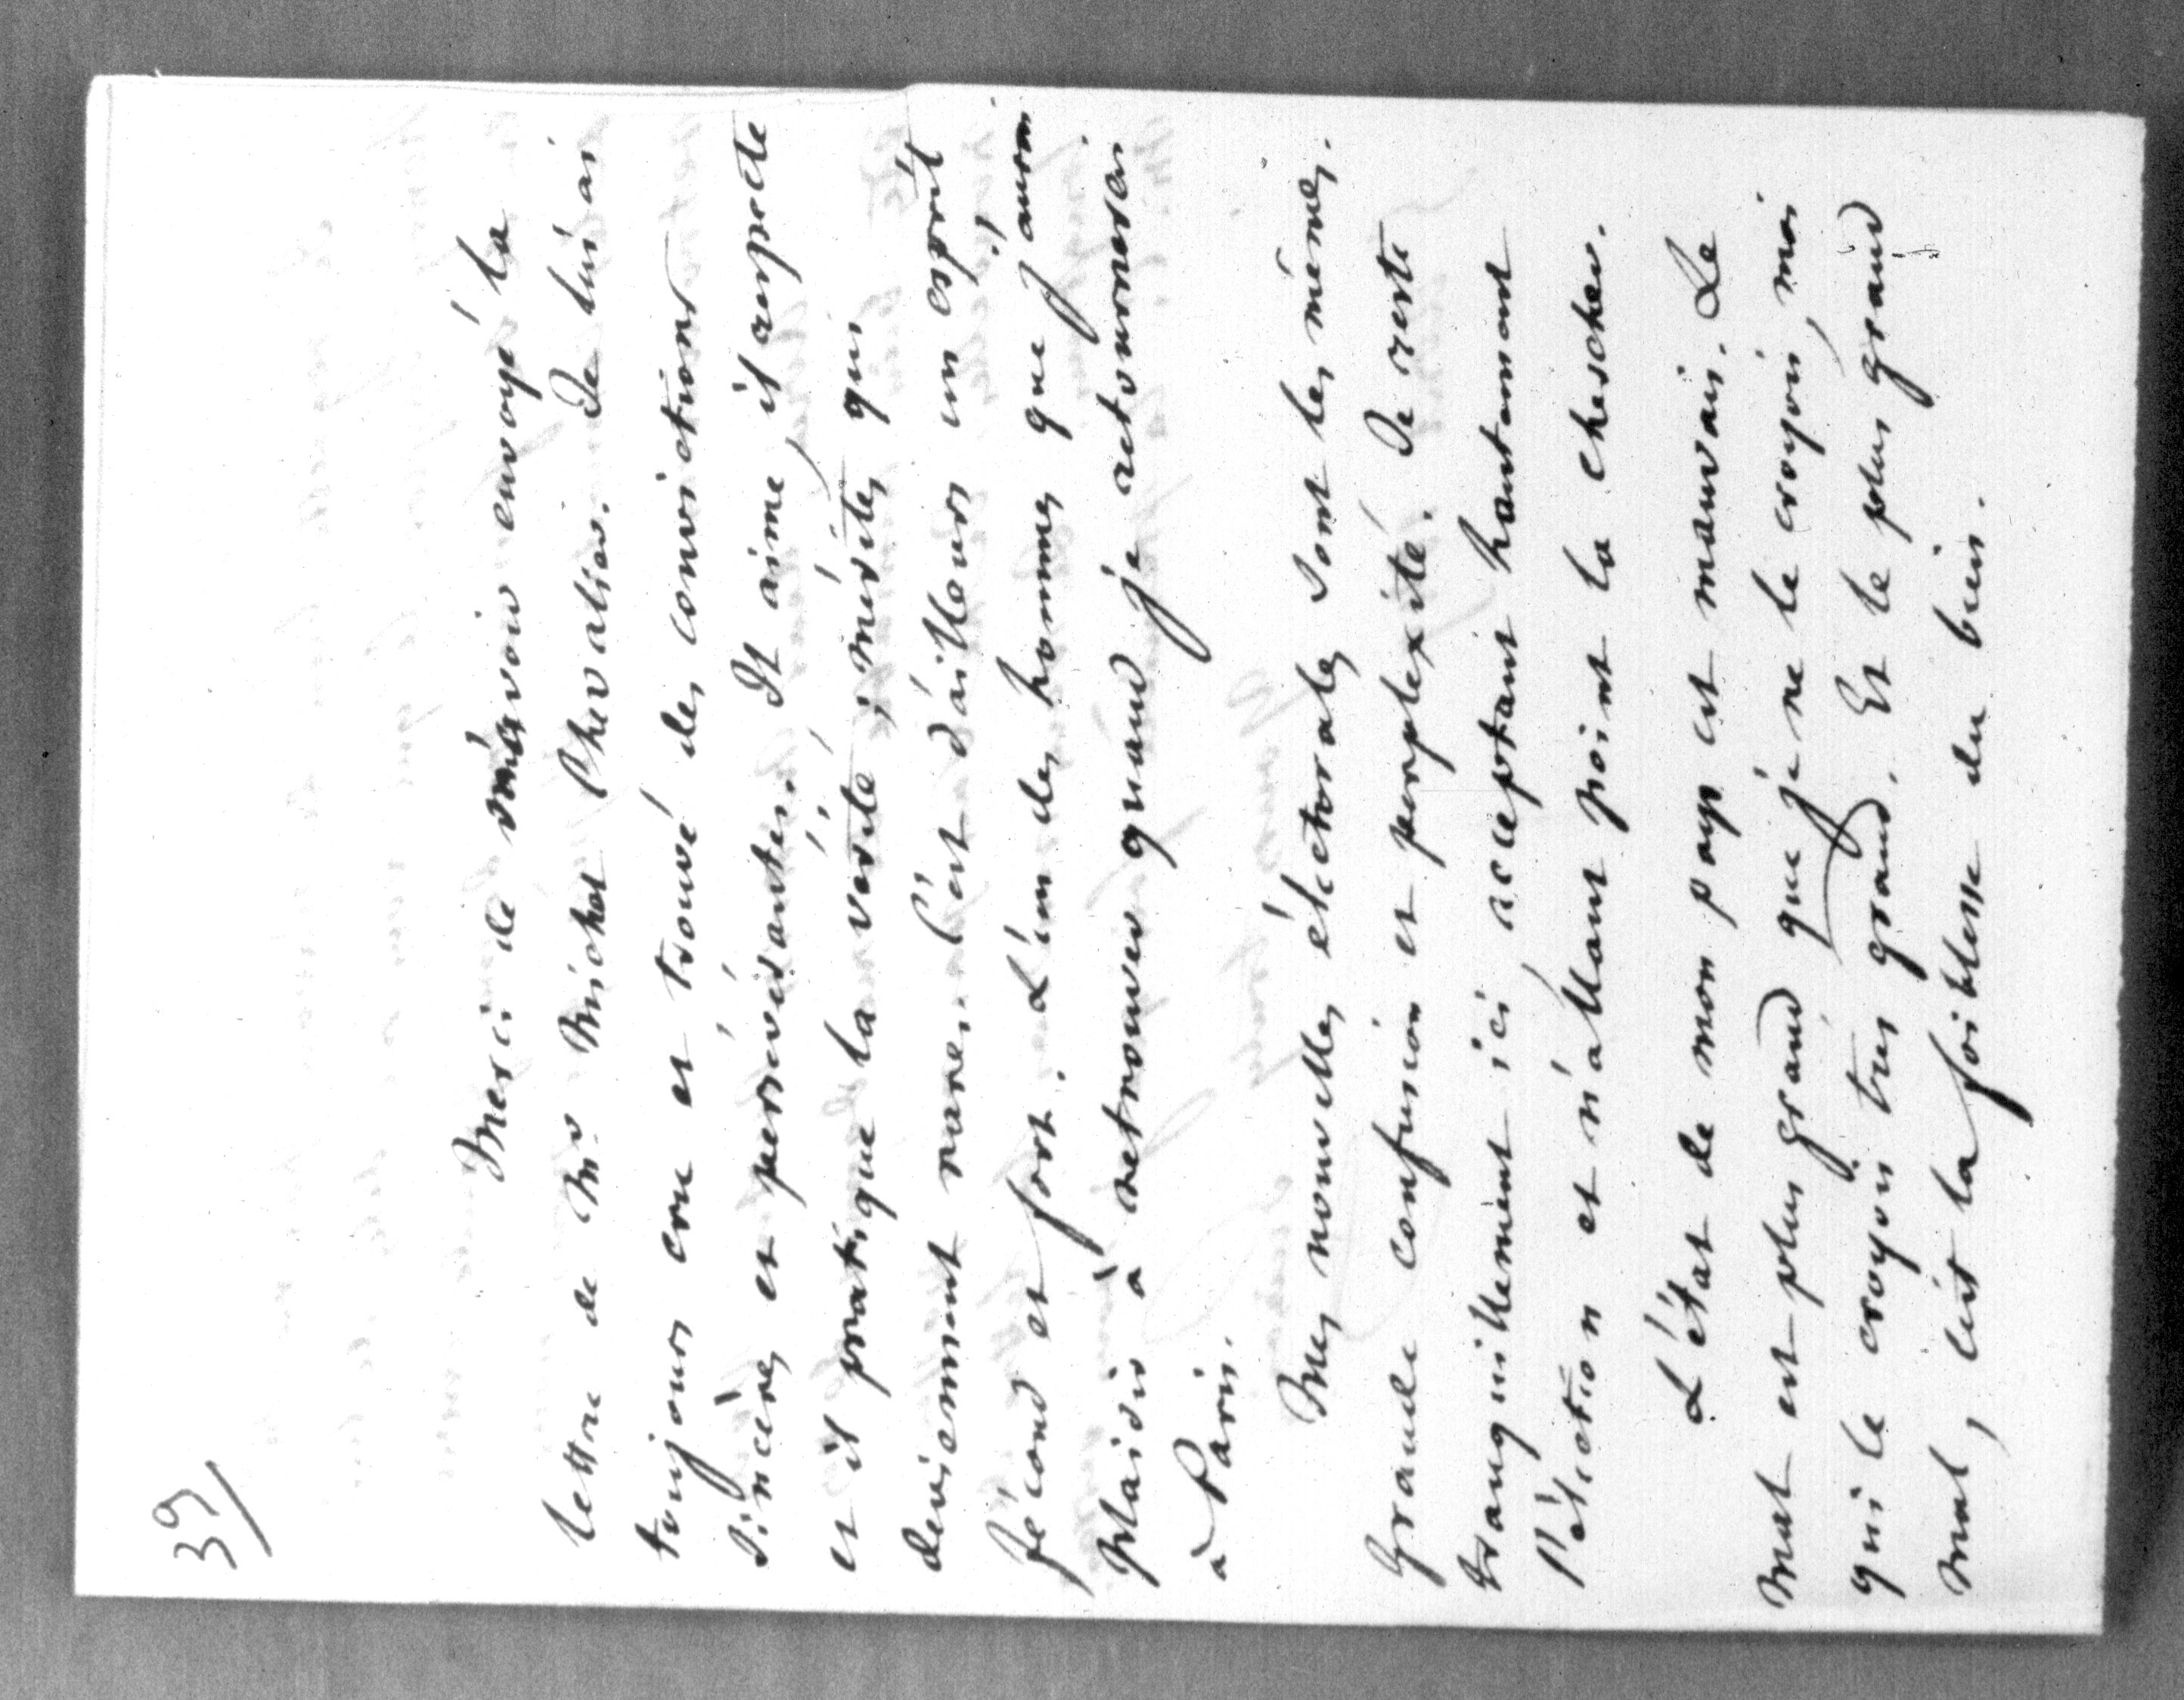 39/
Merci de m'avoir envoyé la
lettre de Mr Michel Chevalier. Je lui ai
toujours cru et trouvé des convictions
sincères et persévérantes. Il aime, il respecte
et il pratique la vérité ; mérites qui
deviennent rares. C'est d'ailleurs un esprit
fécond et fort. L'un des hommes que j'aurai
plaisir à retrouver quand je retournerai
à Paris.
Mes nouvelles électorales sont les mêmes.
Grande confusion et perplexité. Je reste
tranquillement ici, acceptant hautement
l'élection et n'allant point la chercher.
L'état de mon pays est mauvais. Le
mal est plus grand que je ne le croyois, moi
qui le croyois très grand. Et le plus grand
mal, c'est la foiblesse du bien.